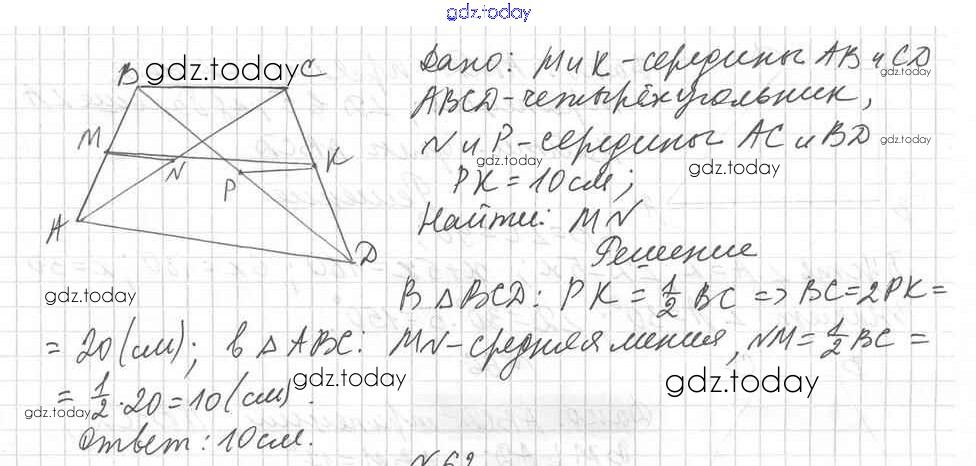 gdz.today
B gdz.today C
Дано: M и K - середины AB и CD
gdz.today
ABCD - четырёхугольник,
M
N и P - середины AC и BD
gdz.today
gdz.today
gdz.today
N
P
K
PK = 10 см;
A
Найти: MN
D
Решение
gdz.today
В △BCD: PK = 1/2 BC => BC = 2PK =
= 20 (см); в △ABC: MN - средняя линия, NM = 1/2 BC =
gdz.today
gdz.today
= 1/2 · 20 = 10 (см).
gdz.today
Ответ: 10 см.
N62